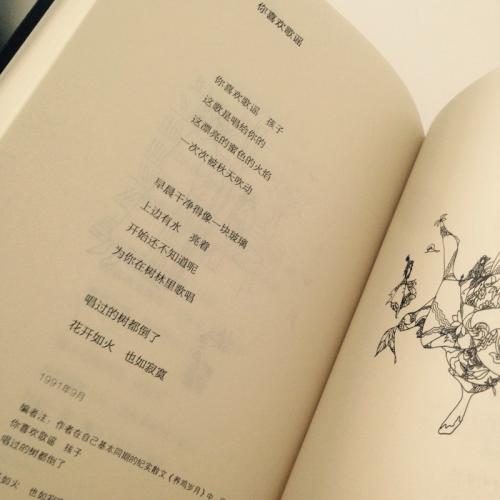 你喜欢歌谣
你喜欢歌谣 孩子
这歌是唱给你的
这漂亮的蜜色的火焰
一次次被秋天吹动
早晨干净得像一块玻璃
上边有水 亮着
开始还不知道呢
为你在树林里歌唱
唱过的树都倒了
花开如火 也如寂寞
1991年9月
编者注：作者在自己基本同期的纪实散文《养鸡岁月》中，
你喜欢歌谣 孩子
唱过的树都倒了
如火 也如寂寞